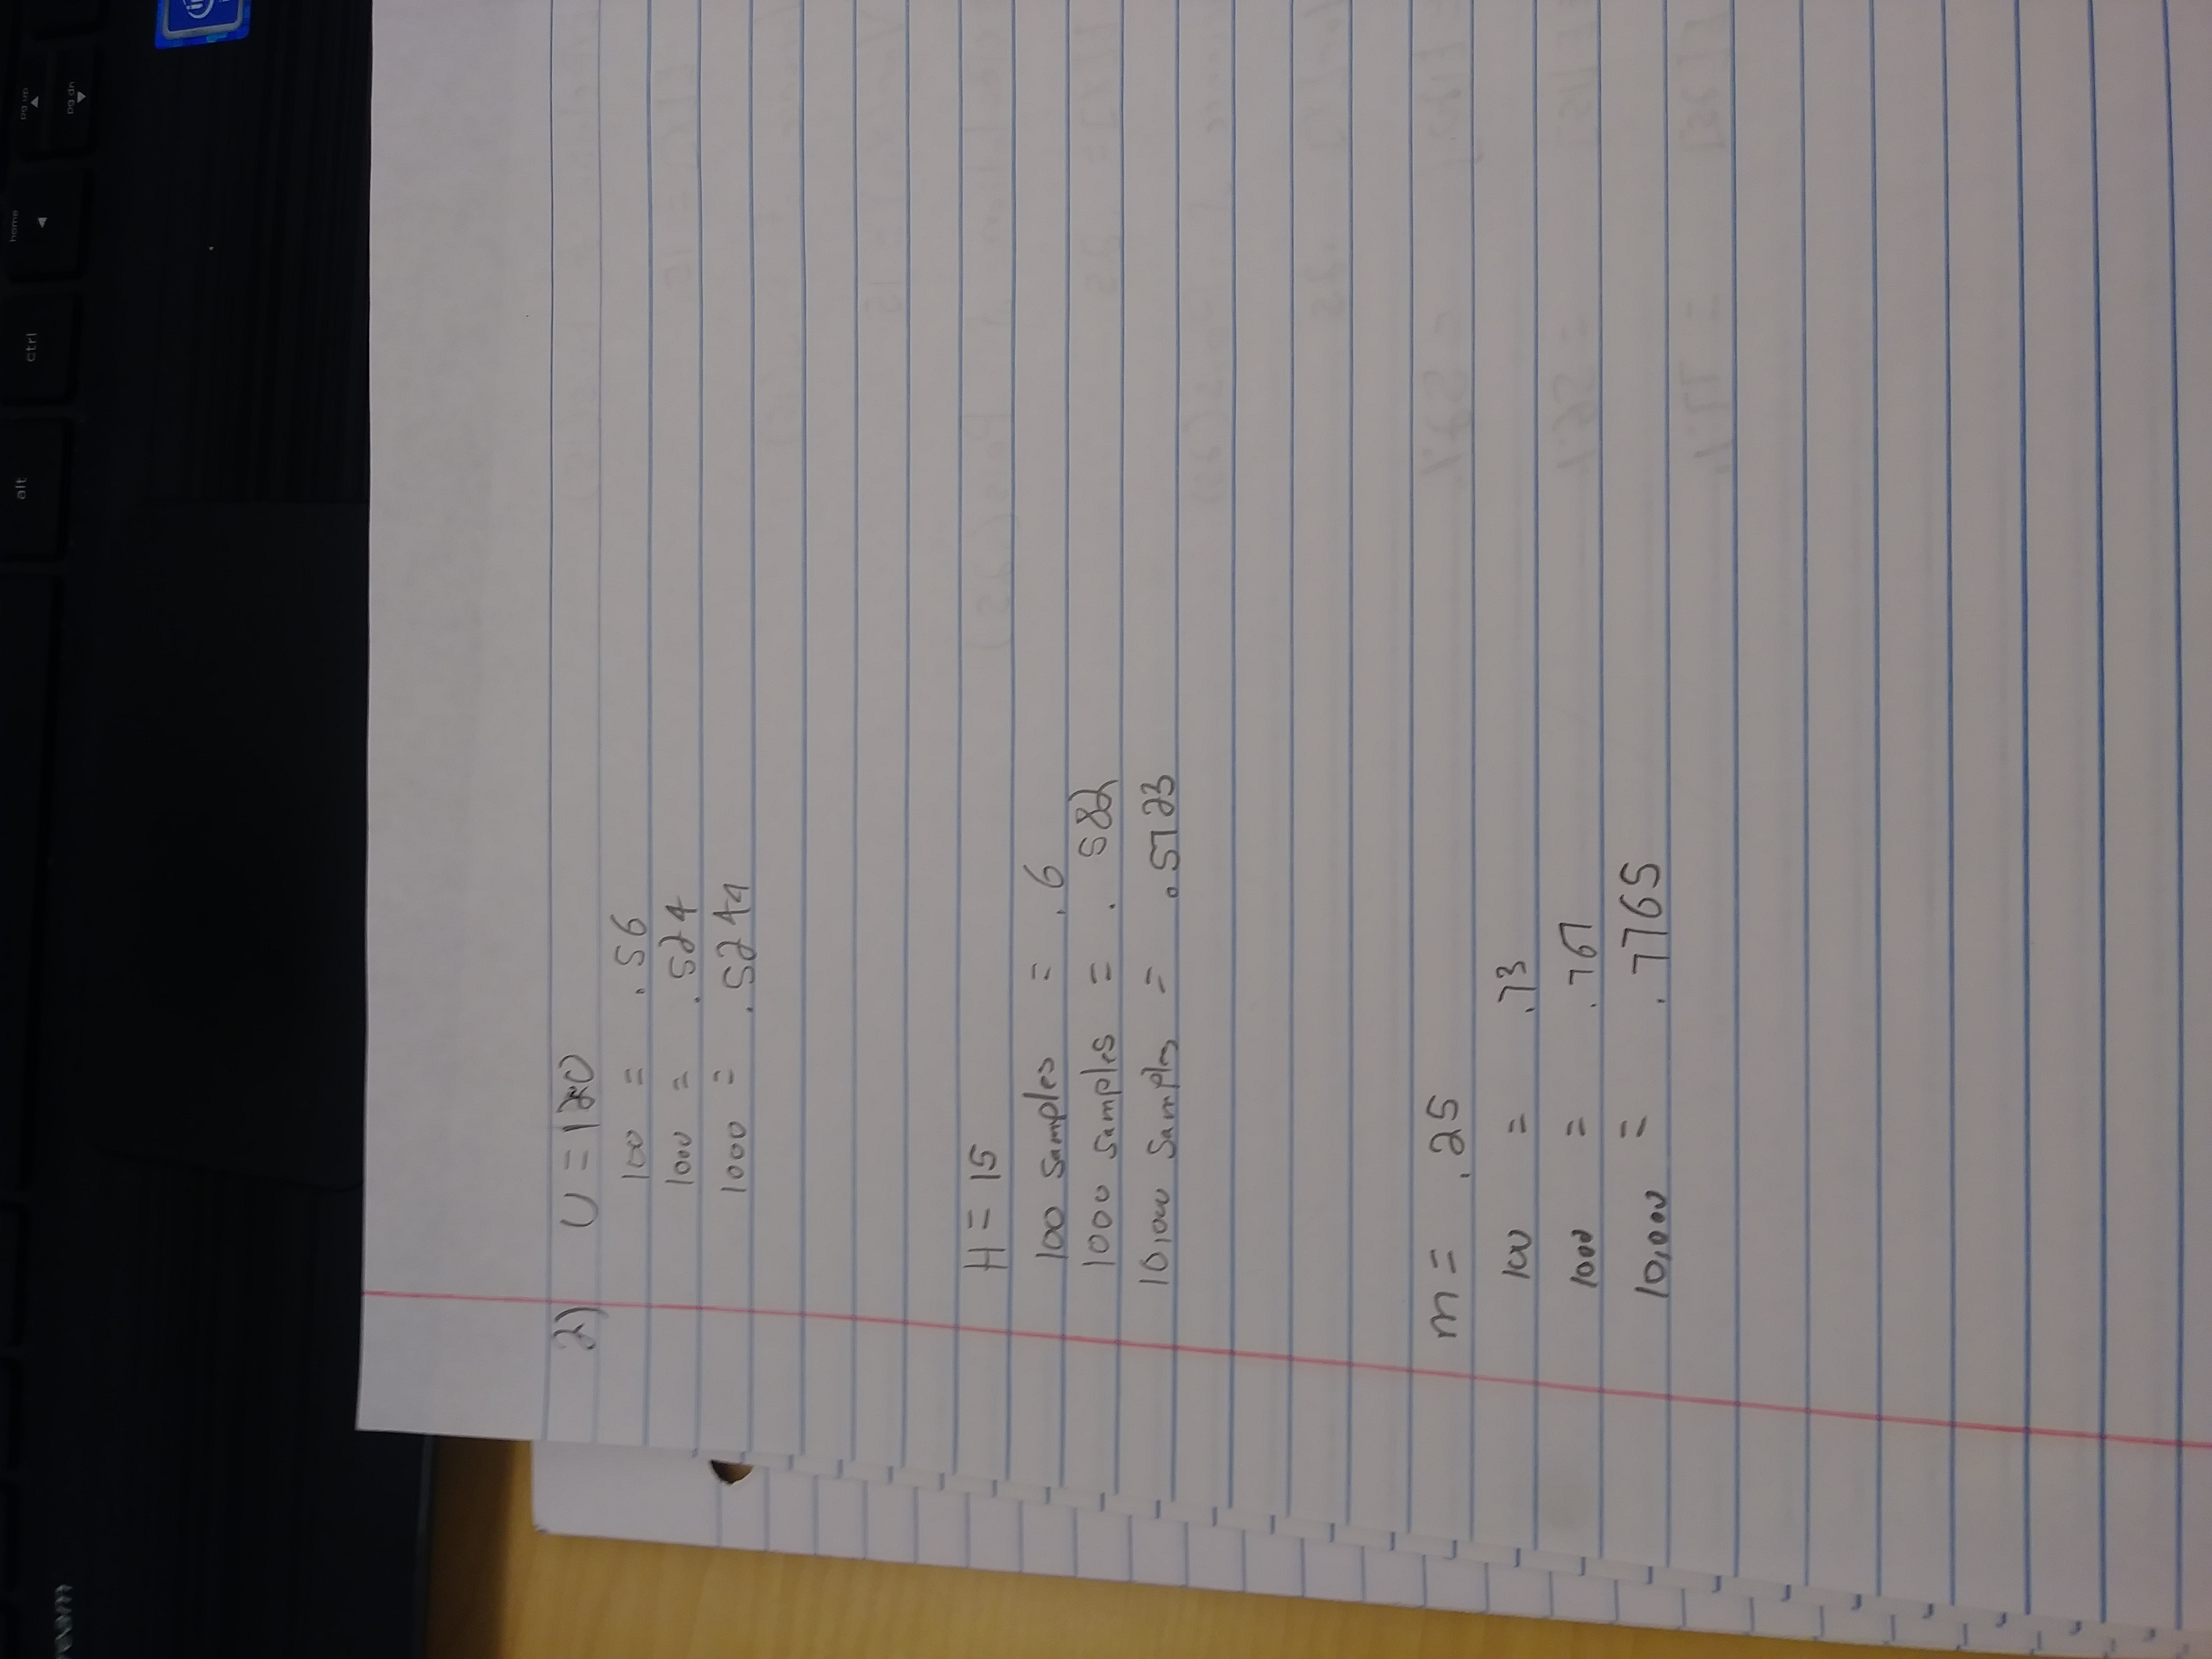 alt
ctrl
home
pg up
pg dn
ream
2) U = 120
100 = .56
1000 = .524
1000 = .5244
H = 15
100 samples = .6
1000 samples = .582
10,000 samples = .5723
m = .25
100 = .73
1000 = .767
10,000 = .7765